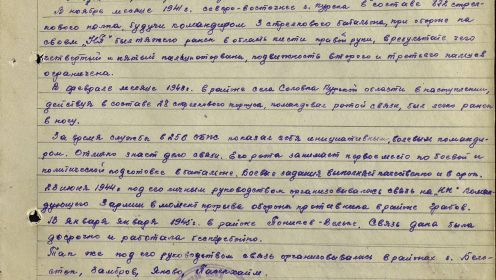 В ноябре месяце 1941г. северо-восточнее г. Курска в составе стрел-
кового полка будучи командиром 3 стрелкового батальона, при обороне на
своем "НП" был тяжело ранен в области кисти правой руки, в результате чего
четвертый и пятый палец ампутирована, подвижность второго и третьего пальцев
ограничена.
В феврале месяце 1943г. в районе села Соловка Курской области в наступлении,
действуя в составе 28 стрелкового корпуса, командовал ротой связи, был легко ранен
в ногу.
За время службы в 250 показал себя инициативным, волевым команди-
ром. Отлично знает дело связи. Его рота занимает первое место по боевой и
политической подготовке в батальоне. Боевые задания выполняет качественно и в срок.
23 июня 1944г. под его личным руководством организовывалась связь на "НП" Коман-
дующего 3 армии в момент прорыва обороны противника в районе Грабов.
В Января Января 1945г. в районе Понихев- Связь дана была
досрочно и работала бесперебойно.
Так же под его руководством связь организовывалась в районах г. Бело-
сток, Замбров, Яново